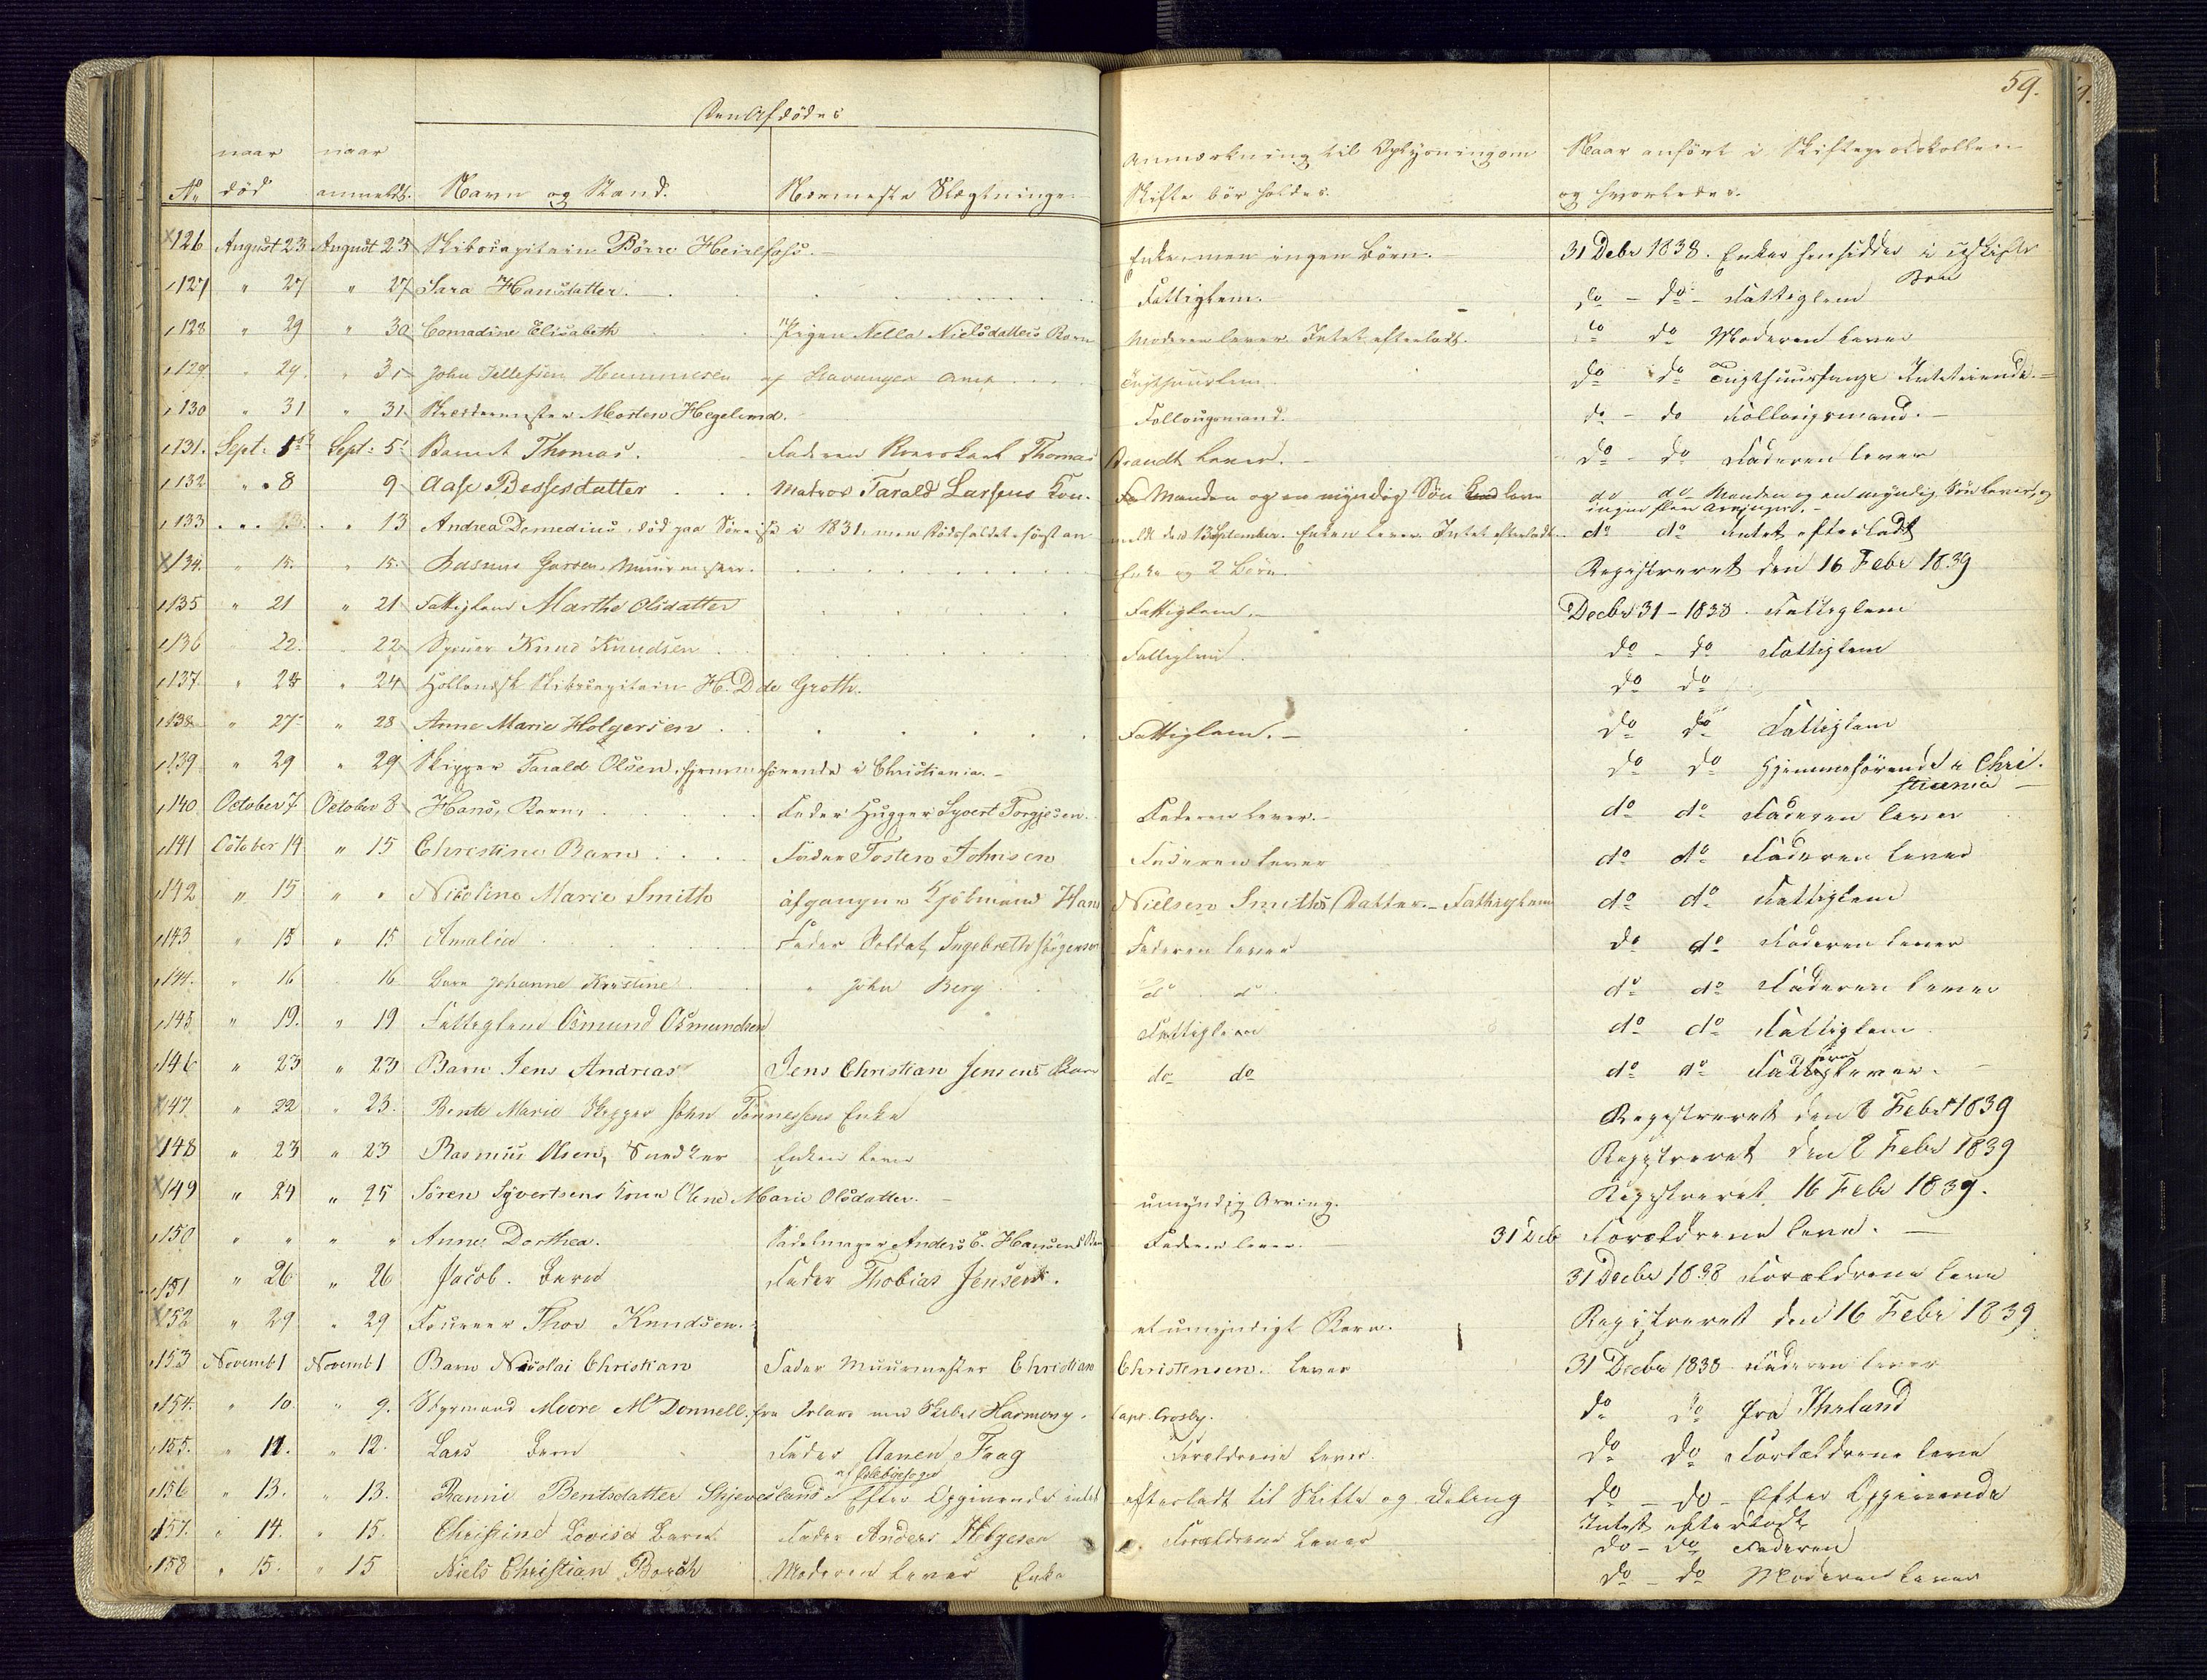 59.
Den Afdødes
No naar død naar anmeldt. Navn og Stand. Nærmeste Slægtninge Anmærkning til Oplysning om Skifte bør holdes. Naar anført i Skifteprotokollen og hvorledes.
126 August 23 August 23 Skibscapitain Börre Heirlfoss. Enke, men ingen Börn. 31 Decbr 1838. Enken hensidder i uskiftet Boe
127 " 27 " 27 Sara Hansdatter. Fattiglem. do - do - Fattiglem
128 " 29 " 30 Conradine Elisabeth Pigen Nella Nielsdatters Barn Moderen lever. Intet efterladt. do do Moderen lever
129 " 29. " 31 John Tellefsen Hummesen af Stavanger Amt Tugthuuslem do do Tugthuusfange Inteteiende.
130 " 31 " 31 Skræddermester Morten Hegelund. Follougsmand. do - do Follougsmand.
131. Sept: 5 Sept: 5 Barnet Thomas. Faderen Thomas Brandt lever. do - do Faderen lever
132 " " 8 9 Aase Bessesdatter Matros Tarald Larsens Kone Manden og en myndig Sön leve do do Manden og en myndig Sön lever, og ingen flere Arvinger.
133 " " 13 " 13 Andrea Demedius, död paa Söreise i 1831, men Dödsfaldet först anmeldt den 13 September. Enken lever. Intet efterladt. do do Intet efterladt
134. " 15. " 15. Rasmus Muurmester. Enke og 2 Börn. Registreret den 16 Febr 1839
135 " 21 " 21 Fattiglem Marthe Olsdatter Fattiglem. Decbr 31 - 1838. Fattiglem
136 22. 22 Knud Knudsen Fattiglem. do - do Fattiglem
137 " 24 " 24 Hollandsk Skibscapitain H. D. de Groth. do do
138 " 27 " 28 Anne Marie Holgersen Fattiglem. do do Fattiglem
139 " 29 " 29 Skipper Tarald Olsen, hjemmehörende i Christiania. do do Hjemmehörende i Christiania
140 October 7. October 8 Hans, Barn, Fader Hugger Syvert Torgjesen. Faderen lever. do do Faderen lever
141 October 14 " 15 Christine Barn Fader Tosten Johnsen Faderen lever do do Faderen lever
142 " 15 " " Nicoline Marie Smith afgangne Kjöbmand Hans Nielsen Smiths Datter. - Fattiglem do do Fattiglem
143 " 15 " 15 Amalia Fader Soldat Ingebreth Jörgensen Faderen lever do do Faderen lever
144. " 16 16 Barn Johanne Kristine " John Berg do do do do Faderen lever
145 " 19. " 19 Fattiglem Osmund Osmundsen Fattiglem do do Fattiglem
146 " 23 " 23 Barn Jens Andreas Jens Christian Jensens Barn do do do do Faderen lever.
147 " 22 " 23. Bente Marie Skipper John Tönnessens Enke Registreret den 8 Febr 1839
148 " 23 " 23 Rasmus Olsen, Snedker Enken lever Registreret den 8 Febr 1839
149 " 24 " 25 Sören Syvertsens Kone Olene Marie Olsdatter. umyndig Arving. Registreret 16 Febr 1839.
150 " " " " Anne Dorthea. Sadelmager Anders E. Hansens Barn Faderen lever. 31 Deb Forældrene leve.
151 " 26 " 26 Jacob. Barn Fader Thobias Jensen. 31 Decbr 1838 Forældrene leve
152 " 29 " 29 Thor Knudsen. et umyndigt Barn. Registreret den 16 Febr 1839
153 Novemb 1 Novemb 1 Barn Nicolai Christian Fader Muurmester Christian Christensen. lever 31 Decbr 1838 Faderen lever
154. " 10. " 9. Styrmand Moore McDonnell. fra Irland med Skibet Harmony. Capt. Crosby. do do fra Ihrland
155. " 11. " 12. Lars Barn Fader Aanen Faag Forældrene lever. do do Forældrene leve
156 " 13. " 13. Ranni Bentsdatter Skjeveslands af Efter Opgivende intet efterladt til Skifte og Deling do - do - Efter Opgivende Intet efterladt
157. " 14. " 15. Christine Lovise Barn Fader Anders Helgesen Forældrene lever do - do Faderen
158 " 15. " 15 Niels Christian Borch Moderen lever Enke do - do Moderen lever